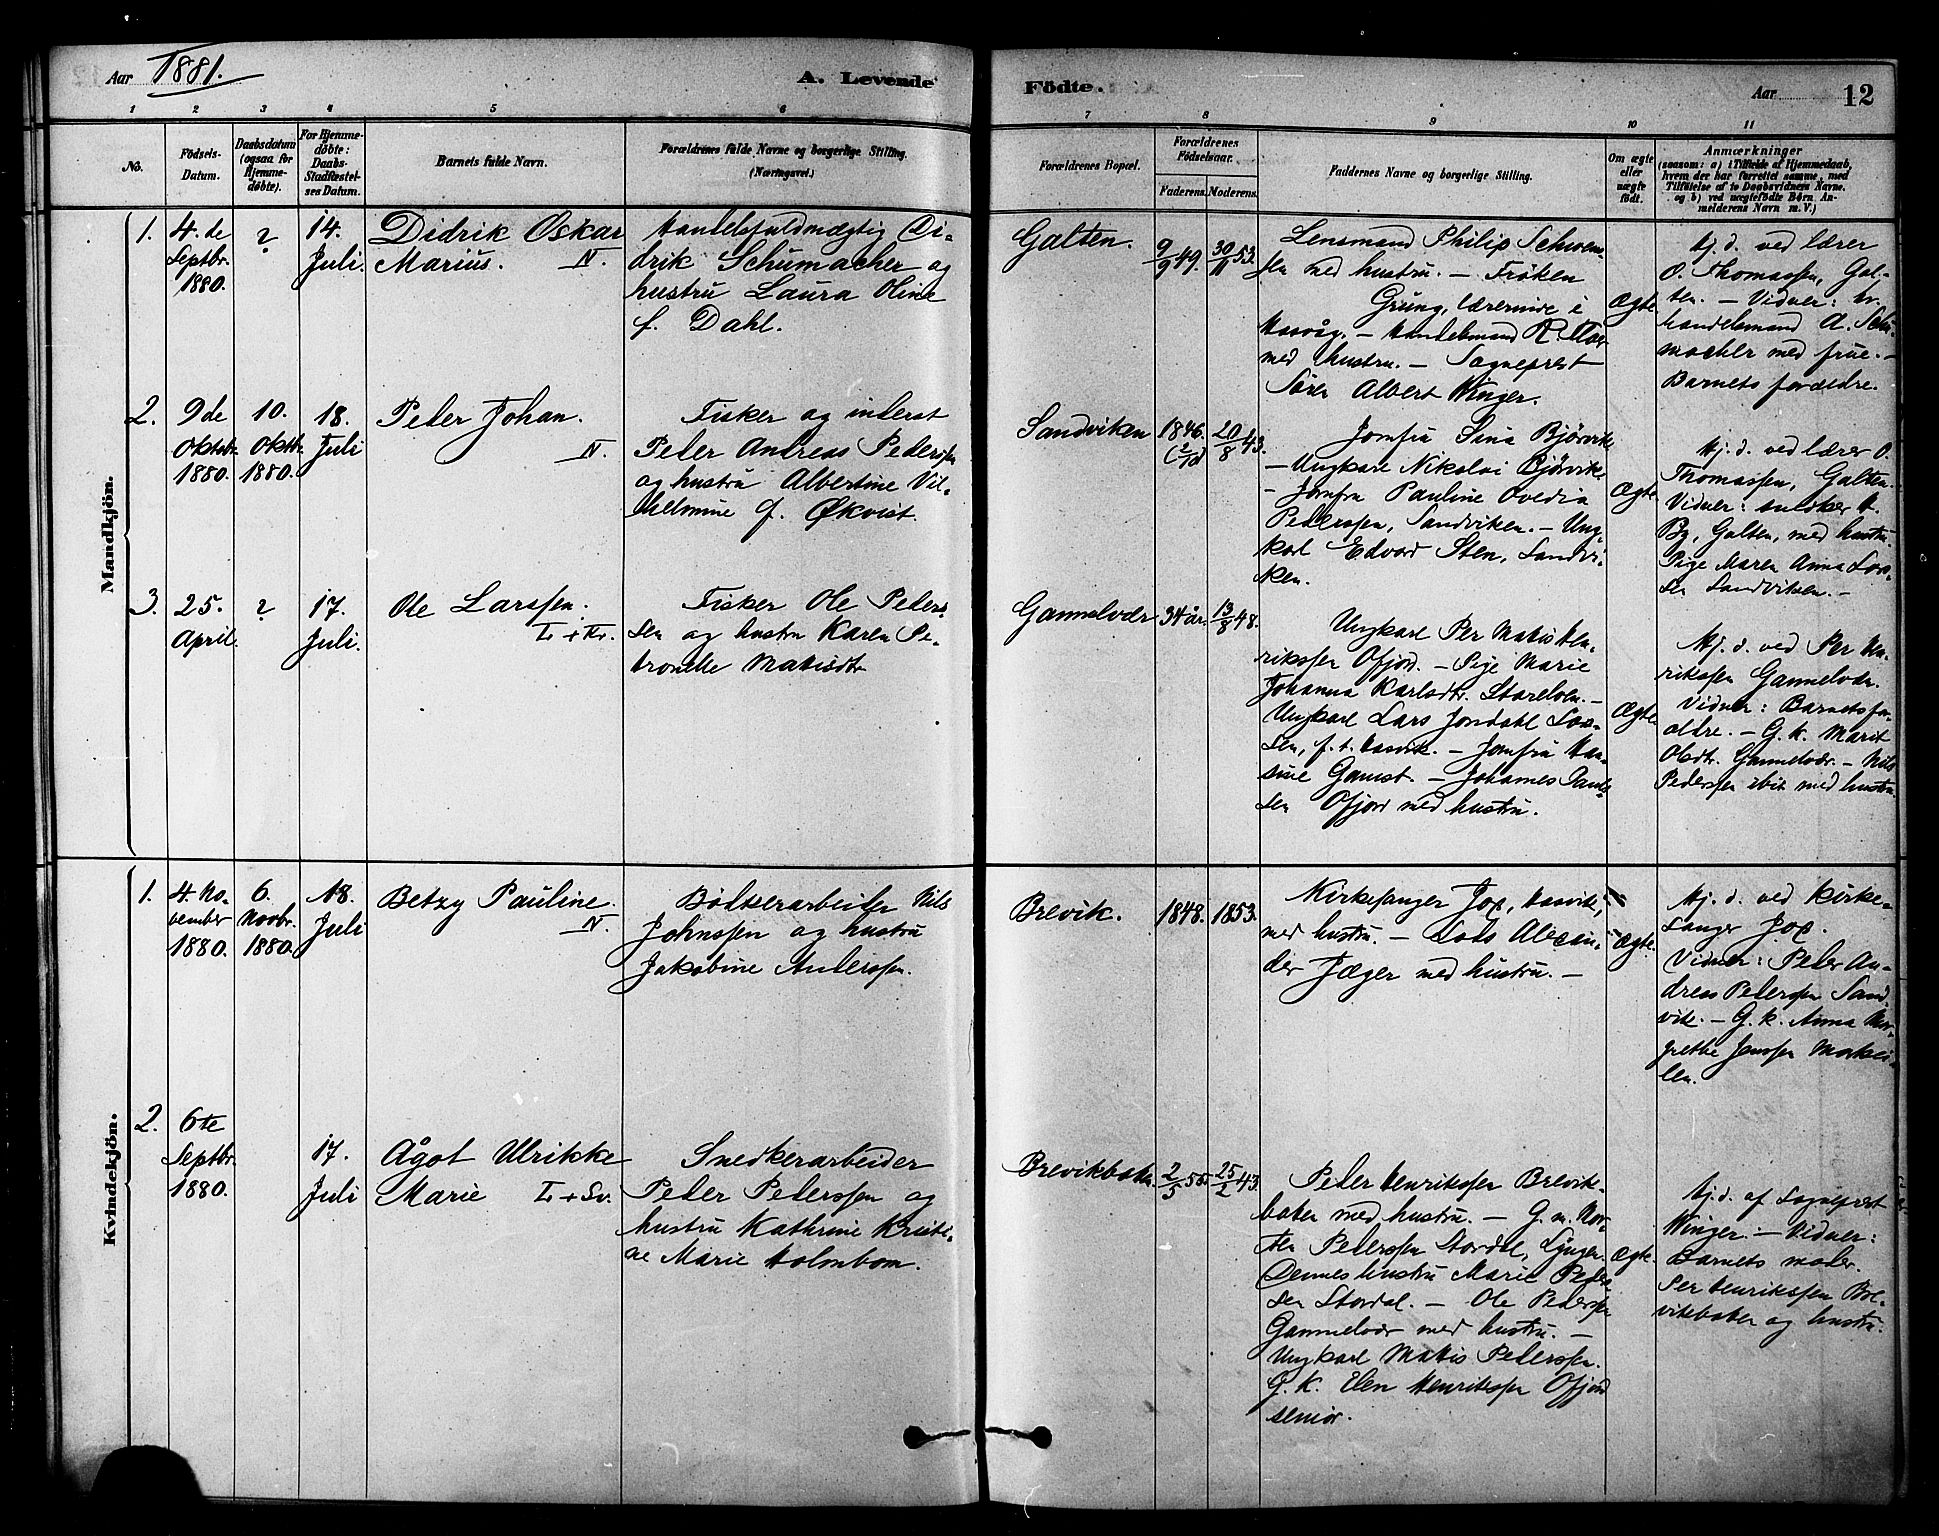 Aar 1881.
A. Levende Födte.
Aar 12
1 2 3 4 5 6 7 8 9 10 11
No.
Födsels-
Datum.
Daabsdatum
(ogsaa for
Hjemme-
døbte).
For Hjemme-
døbte:
Daabs-
Stadfæstel-
ses Datum.
Barnets fulde Navn.
Forældrenes fulde Navne og borgerlige Stilling.
(Næringsvei.)
Forældrenes Bopæl.
Forældrenes
Fødselsaar.
Faderens. Moderens.
Faddernes Navne og borgerlige Stilling.
Om ægte
eller
uægte
født.
Anmærkninger
(saasom: a) i Tilfælde af Hjemmedaab,
hvem der har forrettet samme, med
Tilføielse af to Daabsvidners Navne,
og b) ved uægtefödte Börn An-
melderens Navn m. V.)
Mandkjön.
1.
4. de
Septbr.
1880.
?
14.
Juli.
Didrik Oskar
Marius. N.
Handelsfuldmægtig Di-
drik Schumacher og
hustru Laura Oline
f. Dahl.
Galten.
9/9 49.
30/11 53.
Lensmand Philip
sen med hustru. — Frøken
Grung, lærerinde i
Hasvåg. — Handelsmand R.
med hustru. — Sogneprest
Sören Albert Winger.
Ægte.
Hj. d. ved lærer
O. Thomassen, Gal-
ten. — Vidner: hr.
handelsmand A. Schu-
macher med frue. —
Barnets forældre.
2.
9de
Oktobr.
1880.
10.
Oktbr.
1880.
18.
Juli
Peder Johan.
N.
Fisker og inderst
Peder Andreas Pederssen
og hustru Albertine Vil-
helmine f. Økvist.
Sandviken
1846.
(2/10)
20/8 43.
Jomfru Sina Bjørvik
— Ungkarl Nikolai Bjørvik
— Jomfru Pauline Ovedia
Pederssen, Sandviken. — Ung-
karl Edvard Sten, Sandvi-
ken.
Ægte.
Hj. d. ved lærer O.
Thomassen, Galten.
Vidner: snedker H.
By, Galten, med hustru.
Pige Maren Anna Lars-
sen Sandviken. —
3.
25.
April.
?
17.
Juli.
Ole Larssen.
L. + Kv.
Fisker Ole Peders-
sen og hustru Karen Pe-
tronelle Matisdtr
Gammelvær
34 år.
13/8 48.
Ungkarl Per Matis Hen-
rikssen Ofjord. — Pige Marie
Johanna Karlsdtr. Starelven. —
Ungkarl Lars Jondahl Lars-
sen, f. t. Hasvik. — Jomfru Han-
sine Gamst. — Johannes Paul-
sen Ofjord med hustru.
Ægte.
Hj. d. ved Per Hen-
rikssen Gammelvær.
Vidner: Barnets for-
ældre. — G. k. Marit
Olsdtr. Gammelvær. — Nils
Pederssen ibid med hustru.
Kvindekjön.
1.
4. No-
vember
1880.
6.
Novbr.
1880.
18.
Juli
Betzy Pauline.
N.
Bödkerarbeider Nils
Johnssen og hustru
Jakobine Anderssen.
Brevik.
1848.
1853.
Kirkesanger Jox, Hasvik,
med hustru. — Lods Alexan-
der Jæger med hustru. —
Ægte.
Hj. d. ved kirke-
sanger Jox.
Vidner: Peder An-
dreas Pederssen Sand-
vik. — G. k. Anna Mar-
grethe Jenssen
2.
6te
Septbr.
1880.
17.
Juli
Ågot Ulrikke
Marie L. + Sv.
Snedkerarbeider
Peder Pederssen og
hustru Kathrine Kristi-
ne Marie Holmbom.
Brevikbotn.
2/5 55.
25/2 43.
Peder Henrikssen Brevik-
boten med hustru. — G. m. Mor-
ten Pederssen Stordal, Lynger.
Dennes hustru Marie Peder-
sen Stordal. — Ole Pederssen
Gammelvær med hustru. —
Ungkarl Matis Pederssen.
G. K. Elen Henrikssen Ofjord
senior.
Ægte.
Hj. d. af Sogneprest
Winger. — Vidner:
Barnets moder.
Per Henrikssen Bre-
vikboten og hustru.